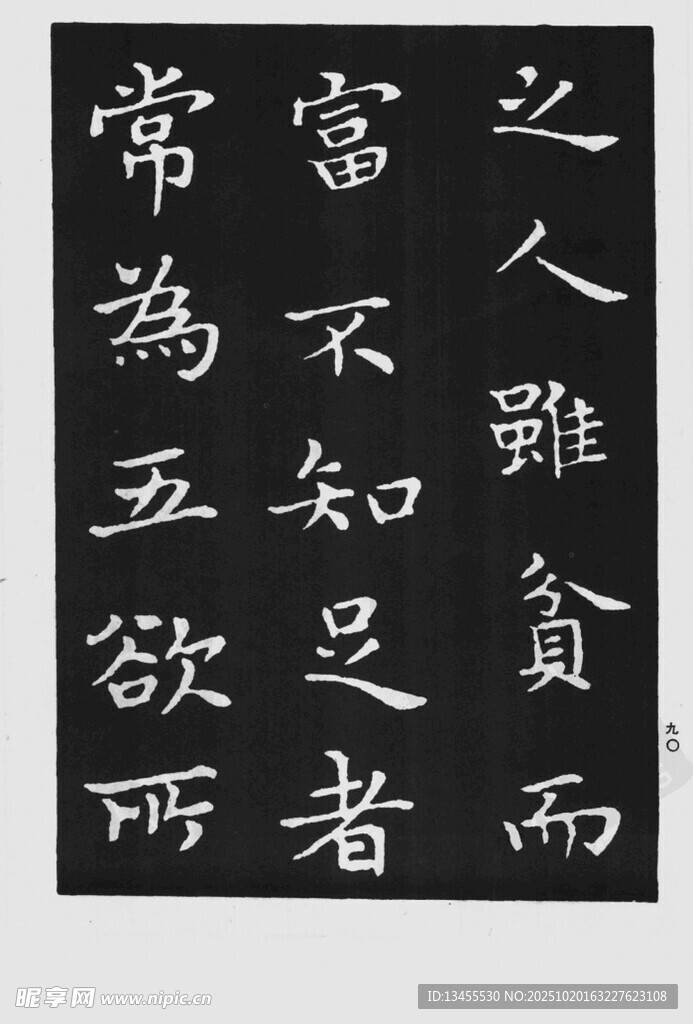 之人雖貧而
富不知足者
常為五欲所
九〇
昵享网 www.nipic.cn
ID:13455530 NO:20251020163227623108